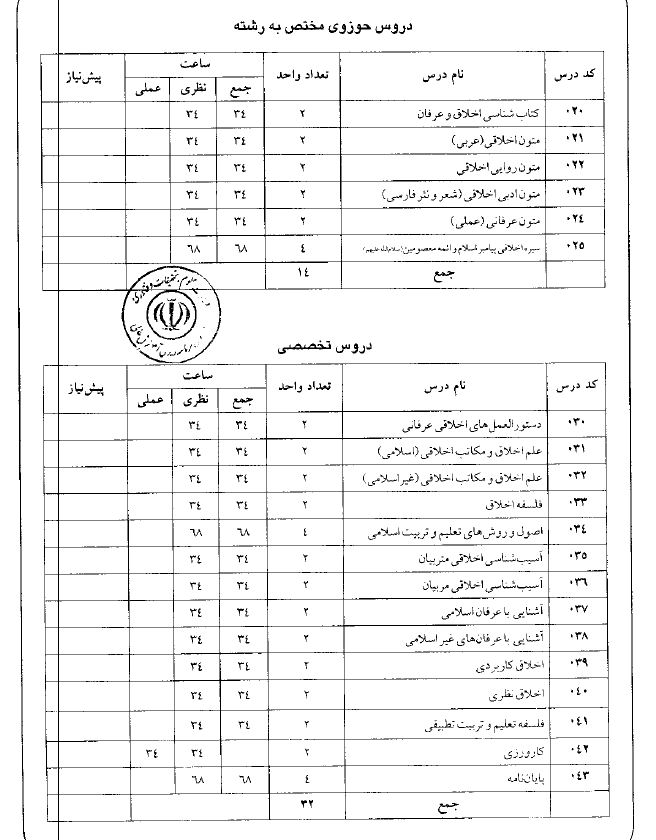 دروس حوزوی مختص به رشته
کد درس نام درس تعداد واحد ساعت پیش‌نیاز
جمع نظری عملی
۰۲۰ کتاب شناسی اخلاق و عرفان ۲ ۳٤ ۳٤
۰۲۱ متون اخلاقی (عربی) ۲ ۳٤ ۳٤
۰۲۲ متون روایی اخلاقی ۲ ۳٤ ۳٤
۰۲۳ متون ادبی اخلاقی (شعر و نثر فارسی) ۲ ۳٤ ۳٤
۰۲٤ متون عرفانی (عملی) ۲ ۳٤ ۳٤
۰۲۵ سیره اخلاقی پیامبر اسلام و ائمه معصومین ٤ ٦۸ ٦۸
جمع ۱٤
دروس تخصصی
کد درس نام درس تعداد واحد ساعت پیش‌نیاز
جمع نظری عملی
۰۳۰ دستورالعمل‌های اخلاقی عرفانی ۲ ۳٤ ۳٤
۰۳۱ علم اخلاق و مکاتب اخلاقی (اسلامی) ۲ ۳٤ ۳٤
۰۳۲ علم اخلاق و مکاتب اخلاقی (غیر اسلامی) ۲ ۳٤ ۳٤
۰۳۳ فلسفه اخلاق ۲ ۳٤ ۳٤
۰۳٤ اصول و روش‌های تعلیم و تربیت اسلامی ٤ ٦۸ ٦۸
۰۳۵ آسیب‌شناسی اخلاقی متربیان ۲ ۳٤ ۳٤
۰۳٦ آسیب‌شناسی اخلاقی مربیان ۲ ۳٤ ۳٤
۰۳۷ آشنایی با عرفان اسلامی ۲ ۳٤ ۳٤
۰۳۸ آشنایی با عرفان‌های غیر اسلامی ۲ ۳٤ ۳٤
۰۳۹ اخلاق کاربردی ۲ ۳٤ ۳٤
۰٤۰ اخلاق نظری ۲ ۳٤ ۳٤
۰٤۱ فلسفه تعلیم و تربیت تطبیقی ۲ ۳٤ ۳٤
۰٤۲ کارورزی ۲ ۳٤ ۳٤
۰٤۳ پایان‌نامه ٤ ٦۸ ٦۸
جمع ۳۲